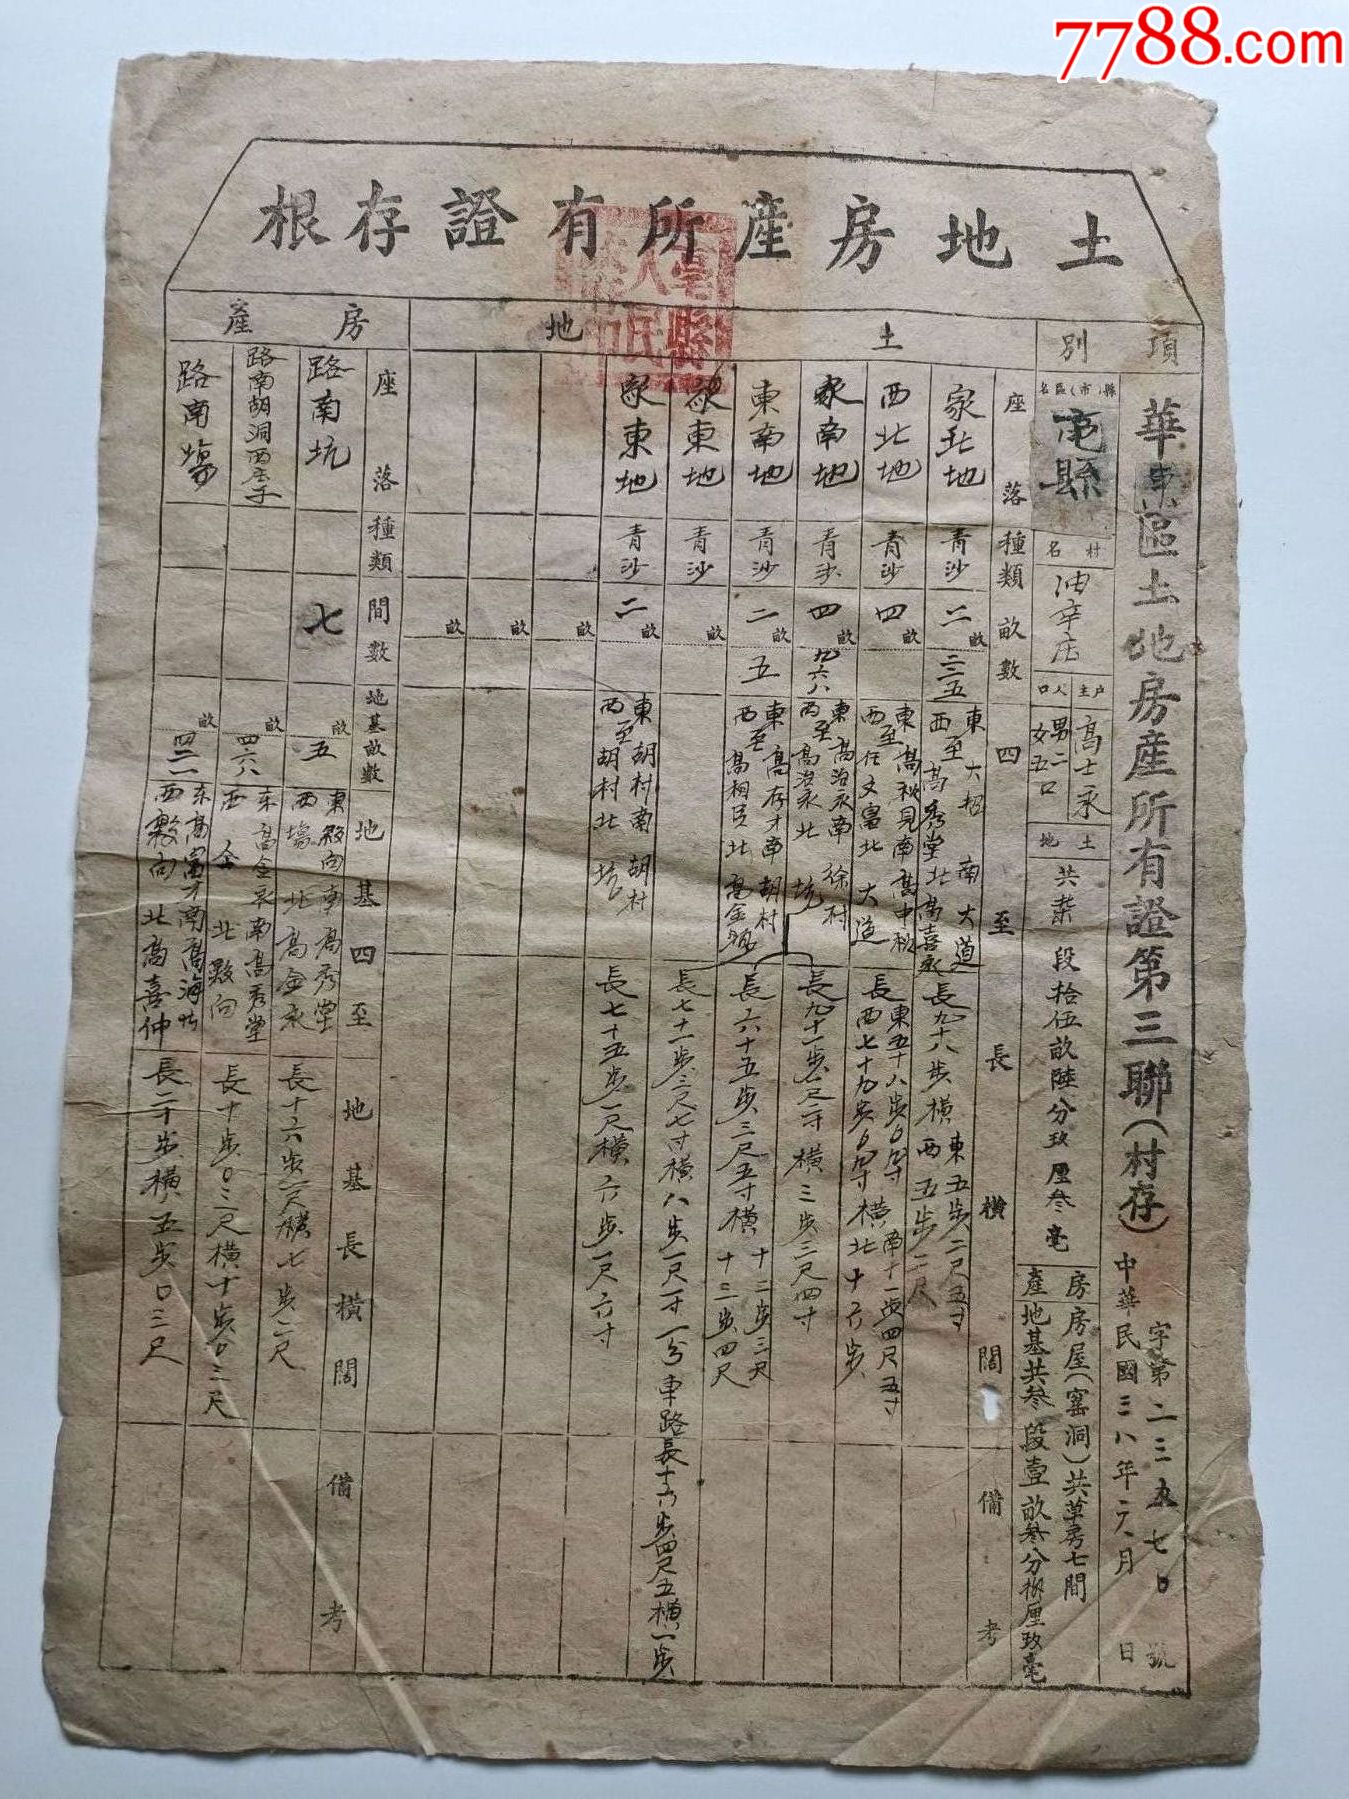 7788.com
土地房產所有證存根
亳縣人民政府印
華東區土地房產所有證第三聯(村存)
字第二三五七〇號
中華民國三八年六月 日
項別
縣(市)區名
亳縣
村名
油辛店
戶主
高士永
人口
男二口
女五口
土地
共柒段拾伍畝陸分玖厘叁毫
房產
房屋(窰洞)共草房七間
地基共叁段壹畝叁分捌厘玖毫
土地
座落
種類
畝數
四至
長橫闊
備考
家北地
青沙
二畝
二三五
東大路南大道
西至高秀堂北高喜永
長九十八步橫東五步二尺五寸
西五步二尺
西北地
青沙
四畝
西至任文富北大道
橫南十一步四尺五寸
北十六步
家南地
青沙
四畝
九六八
東高治永南徐村
西至高治永北坑
橫三步三尺四寸
東南地
青沙
二畝
五
東高存才南胡村
西至高相臣北高金
長六十五步三尺五寸橫十二步三尺
十三步四尺
家東地
青沙
畝
長七十一步三尺七寸橫八步一尺一寸一分東路長十六步四尺五橫一步
家東地
青沙
二畝
東胡村南胡村
西至胡村北坑
長七十五步一尺橫六步一尺六寸
畝
畝
畝
房產
座落
種類
間數
地基畝數
地基四至
地基長橫闊
備考
路南坑
七
畝
五
東殿向南高秀堂
西塲北高金永
長十六步一尺橫七步二尺
路南胡洞西店子
畝
四六八
東高金永南高秀堂
西仝北殿向
長十步〇三尺橫十步〇三尺
路南塲
畝
四二一
東高富才南高海
西殿向北高喜仲
長二十步橫五步〇三尺